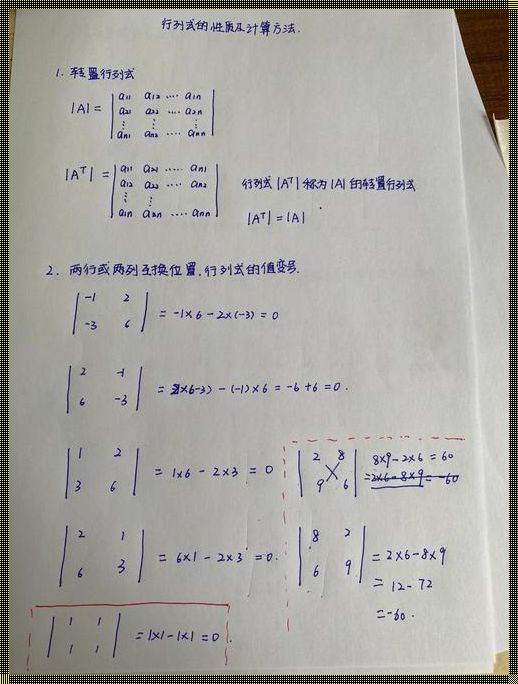 行列式的性质及计算方法.
1. 转置行列式
|A| = | a11 a12 .... a1n |
| a21 a22 .... a2n |
| ⋮ ⋮ ⋮ |
| an1 an2 .... ann |
|A^T| = | a11 a21 ..... an1 |
| a12 a22 .... an2 |
| ⋮ ⋮ |
| a1n a2n .... ann |
行列式 |A^T| 称为 |A| 的转置行列式
|A^T| = |A|
2. 两行或两列互换位置,行列式的值变号.
| -1 2 |
| -3 6 | = -1×6 - 2×(-3) = 0
| 2 -1 |
| 6 -3 | = 2×(-3) - (-1)×6 = -6+6 = 0.
| 1 2 |
| 3 6 | = 1×6 - 2×3 = 0
| 2 1 |
| 6 3 | = 6×1 - 2×3 = 0.
| 1 1 |
| 1 1 | = 1×1 - 1×1 = 0.
| 2 8 |
| 9 6 | 8×9 - 2×6 = 60
= 2×6 - 8×9 = -60
| 8 2 |
| 6 9 | = 2×6 - 8×9
= 12 - 72
= -60.